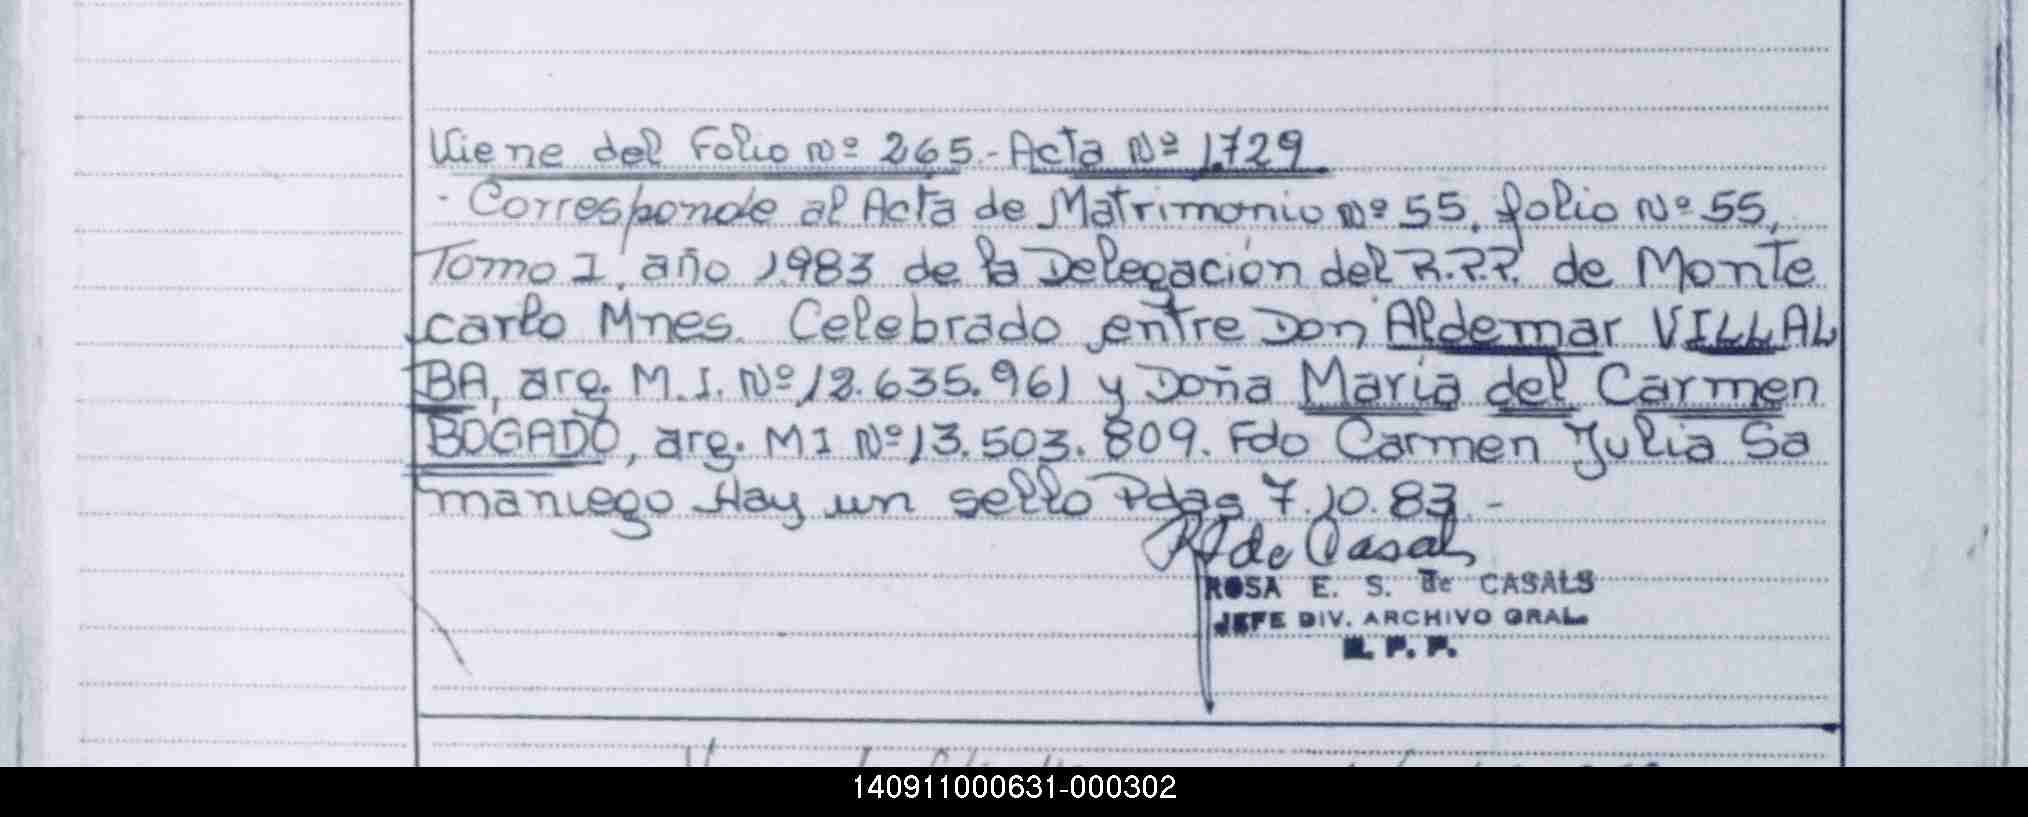 Viene del Folio Nº 265.- Acta Nº 1.729
- Corresponde al Acta de Matrimonio Nº 55, folio Nº 55,
Tomo I, año 1.983 de la Delegación del R.P.P. de Monte
carlo Mnes. Celebrado entre Don Aldemar VILLAL
BA, arg. M.I. Nº 12.635.961 y Doña María del Carmen
BOGADO, arg. MI Nº 13.503.809. Fdo Carmen Julia Sa
maniego Hay un sello Pdas 7.10.83.-
de Casals
ROSA E. S. de CASALS
JEFE DIV. ARCHIVO GRAL.
R. P. P.
140911000631-000302